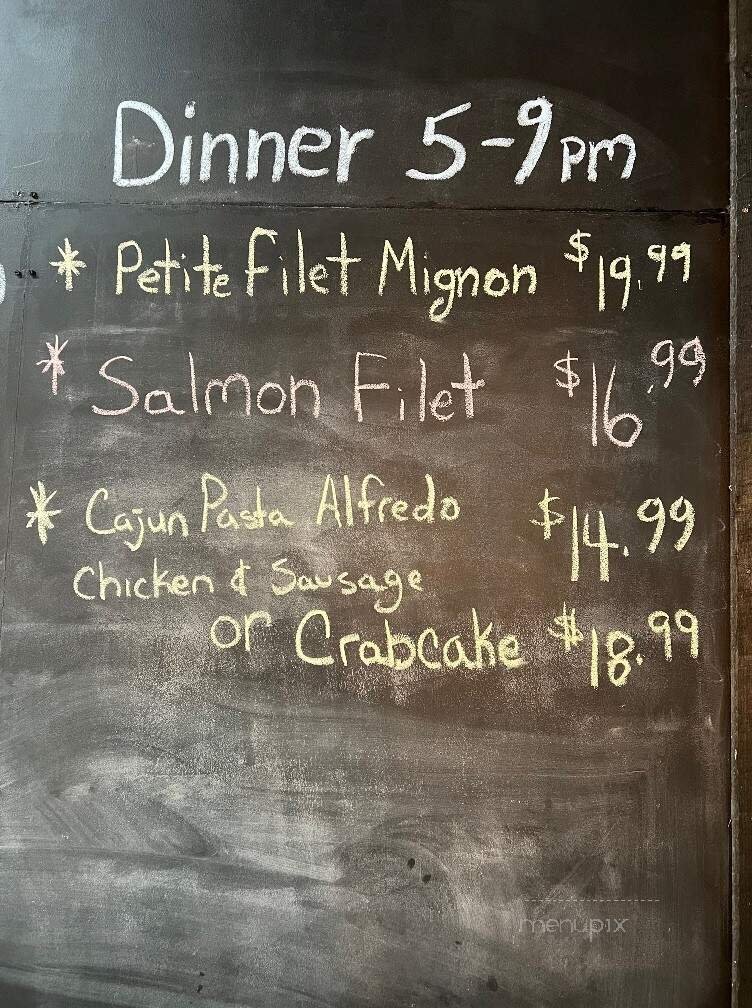 Dinner 5-9pm
* Petite Filet Mignon $19.99
* Salmon Filet $16.99
* Cajun Pasta Alfredo $14.99
Chicken & Sausage
or Crabcake $18.99
menupix